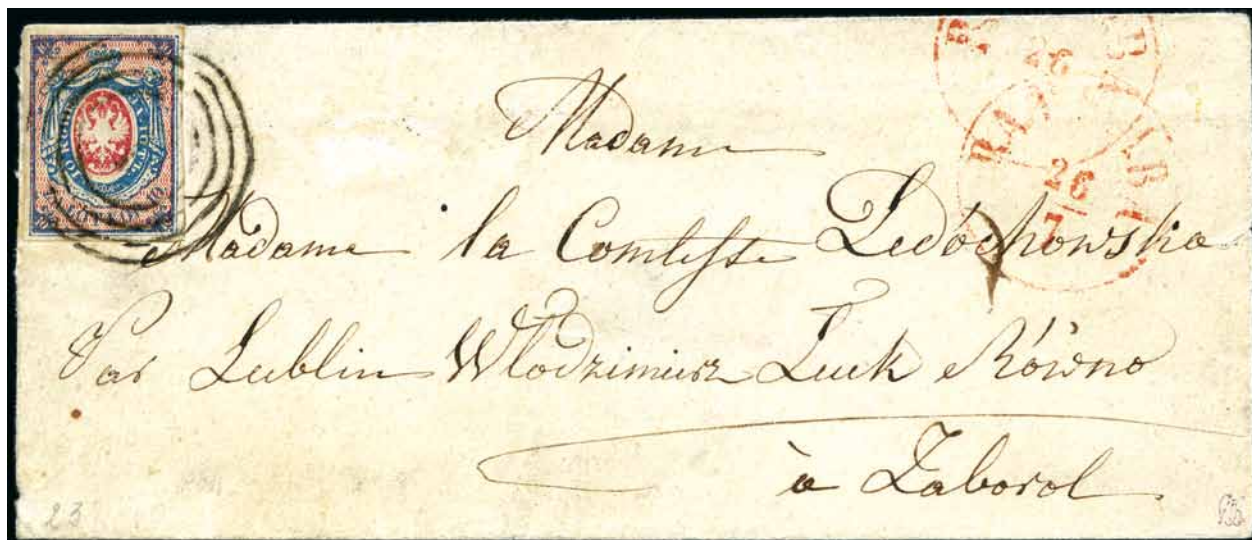 Madame
Madame la Comtesse Ledóchowska
Par Lublin Włodzimierz Łuck Równo
à Zaborol
26
26
7
23